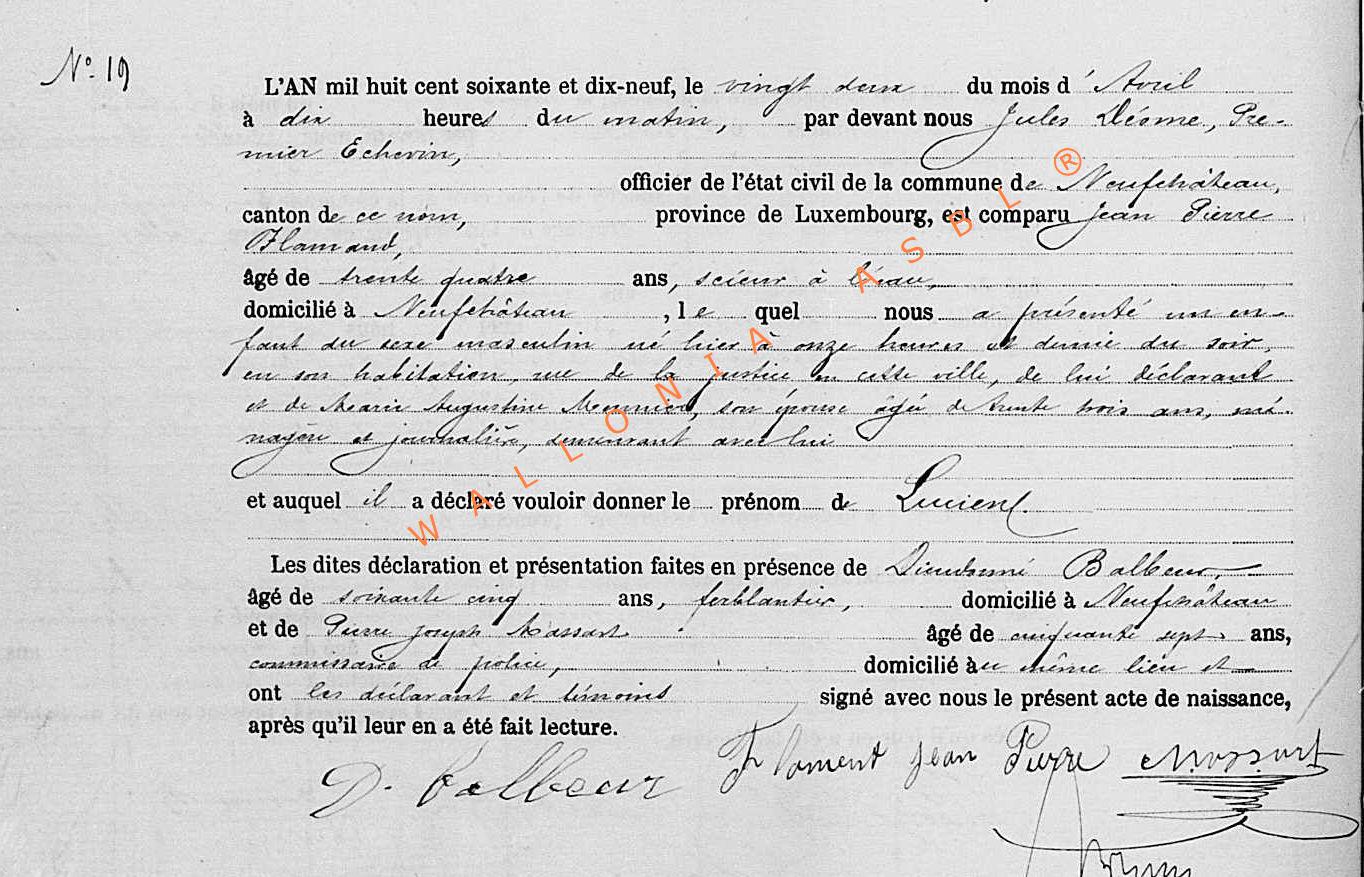 N° 19
L'AN mil huit cent soixante et dix-neuf, le vingt deux du mois d' Avril
à dix heures du matin, par devant nous Jules Déome, Pre-
mier Echevin,
officier de l'état civil de la commune de Neufchâteau,
canton de ce nom, province de Luxembourg, est comparu Jean Pierre
Flamand,
âgé de trente quatre ans, scieur à
domicilié à Neufchâteau, le quel nous a présenté un en-
fant du sexe masculin né hier à onze heures et demie du soir,
en son habitation, rue de la justice en cette ville, de lui déclarant
et de Marie Augustine Meunier, son épouse âgée de trente trois ans, mé-
nagère et journalière, demeurant avec lui
et auquel il a déclaré vouloir donner le prénom de Lucien
Les dites déclaration et présentation faites en présence de Dieudonné Balbeur,
âgé de soixante cinq ans, ferblantier, domicilié à Neufchâteau
et de Pierre Joseph Massart âgé de cinquante sept ans,
commissaire de police, domicilié au même lieu et
ont les déclarant et témoins signé avec nous le présent acte de naissance,
après qu'il leur en a été fait lecture.
D. Balbeur Flament Jean Pierre Massart
WALLONIA ASBL ®